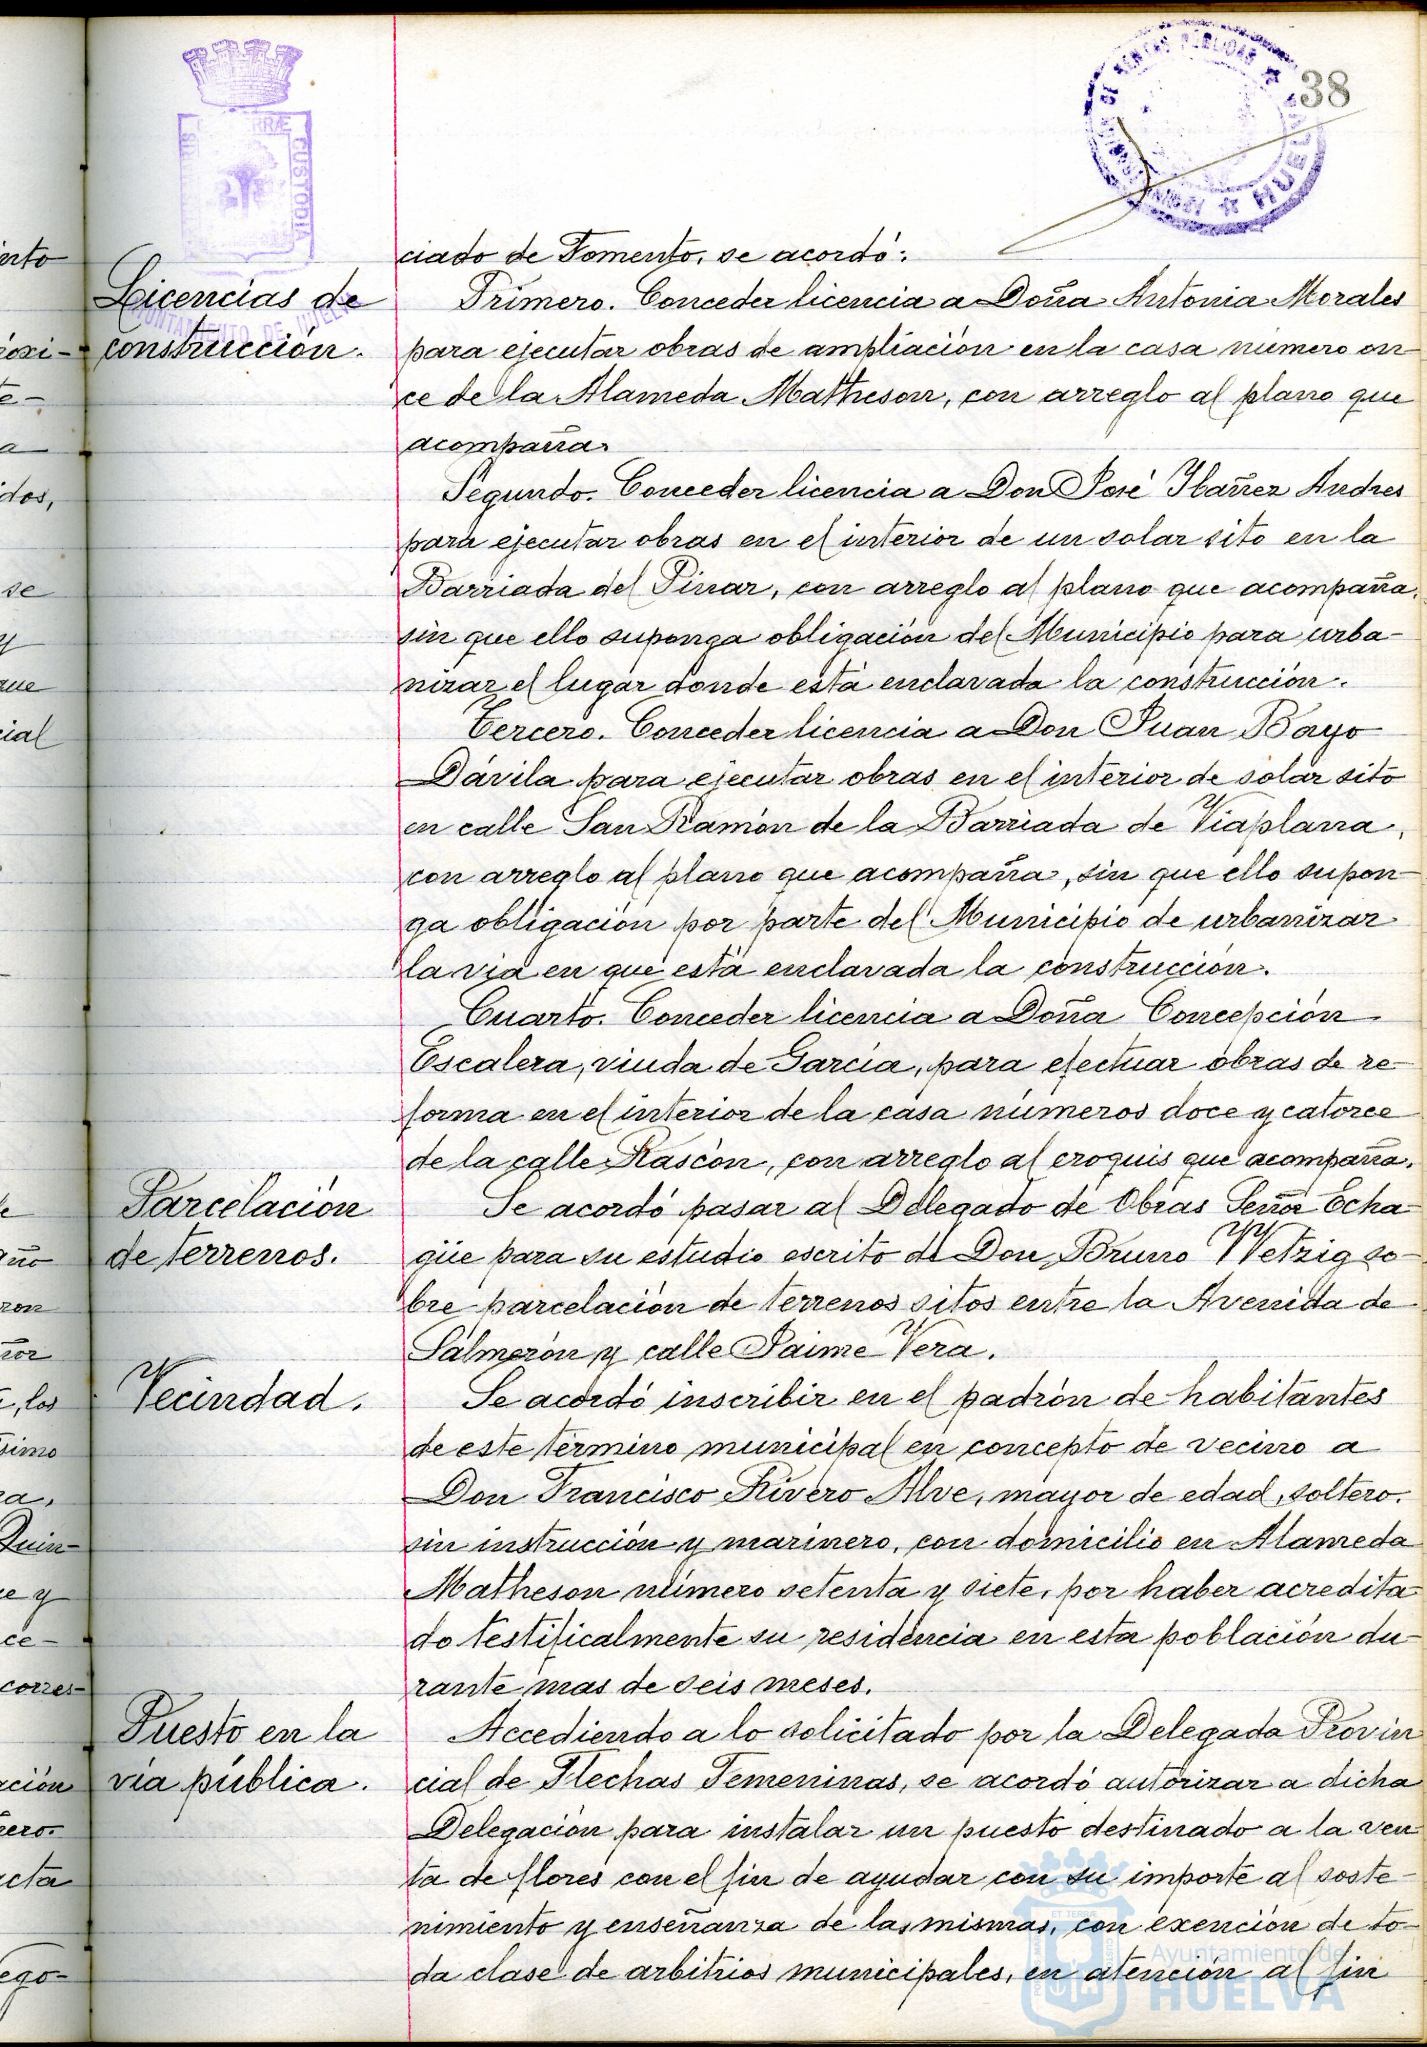 38
ciado de Fomento, se acordó:
Licencias de
construcción.
Primero. Conceder licencia a Doña Antonia Morales
para ejecutar obras de ampliación en la casa número on-
ce de la Alameda Matheson, con arreglo al plano que
acompaña.
Segundo. Conceder licencia a Don José Ibañez Andres
para ejecutar obras en el interior de un solar sito en la
Barriada del Pinar, con arreglo al plano que acompaña,
sin que ello suponga obligación del Municipio para urba-
nizar el lugar donde está enclavada la construcción.
Tercero. Conceder licencia a Don Juan Bayo
Dávila para ejecutar obras en el interior de solar sito
en calle San Ramón de la Barriada de Viaplana,
con arreglo al plano que acompaña, sin que ello supon-
ga obligación por parte del Municipio de urbanizar
la via en que está enclavada la construcción.
Cuarto. Conceder licencia a Doña Concepción
Escalera, viuda de Garcia, para efectuar obras de re-
forma en el interior de la casa números doce y catorce
de la calle Rascón, con arreglo al croquis que acompaña.
Parcelación
de terrenos.
Se acordó pasar al Delegado de Obras Señor Echa-
güe para su estudio escrito de Don Bruno Wetzig so-
bre parcelación de terrenos sitos entre la Avenida de
Salmerón y calle Jaime Vera.
Vecindad.
Se acordó inscribir en el padrón de habitantes
de este término municipal en concepto de vecino a
Don Francisco Rivero Alve, mayor de edad, soltero,
sin instrucción y marinero, con domicilio en Alameda
Matheson número setenta y siete, por haber acredita-
do testificalmente su residencia en esta población du-
rante mas de seis meses.
Puesto en la
via pública.
Accediendo a lo solicitado por la Delegada Provin
cial de Flechas Femeninas, se acordó autorizar a dicha
Delegación para instalar un puesto destinado a la ven
ta de flores con el fin de ayudar con su importe al soste-
nimiento y enseñanza de las mismas, con exención de to-
da clase de arbitrios municipales, en atención al fin
Ayuntamiento de
HUELVA